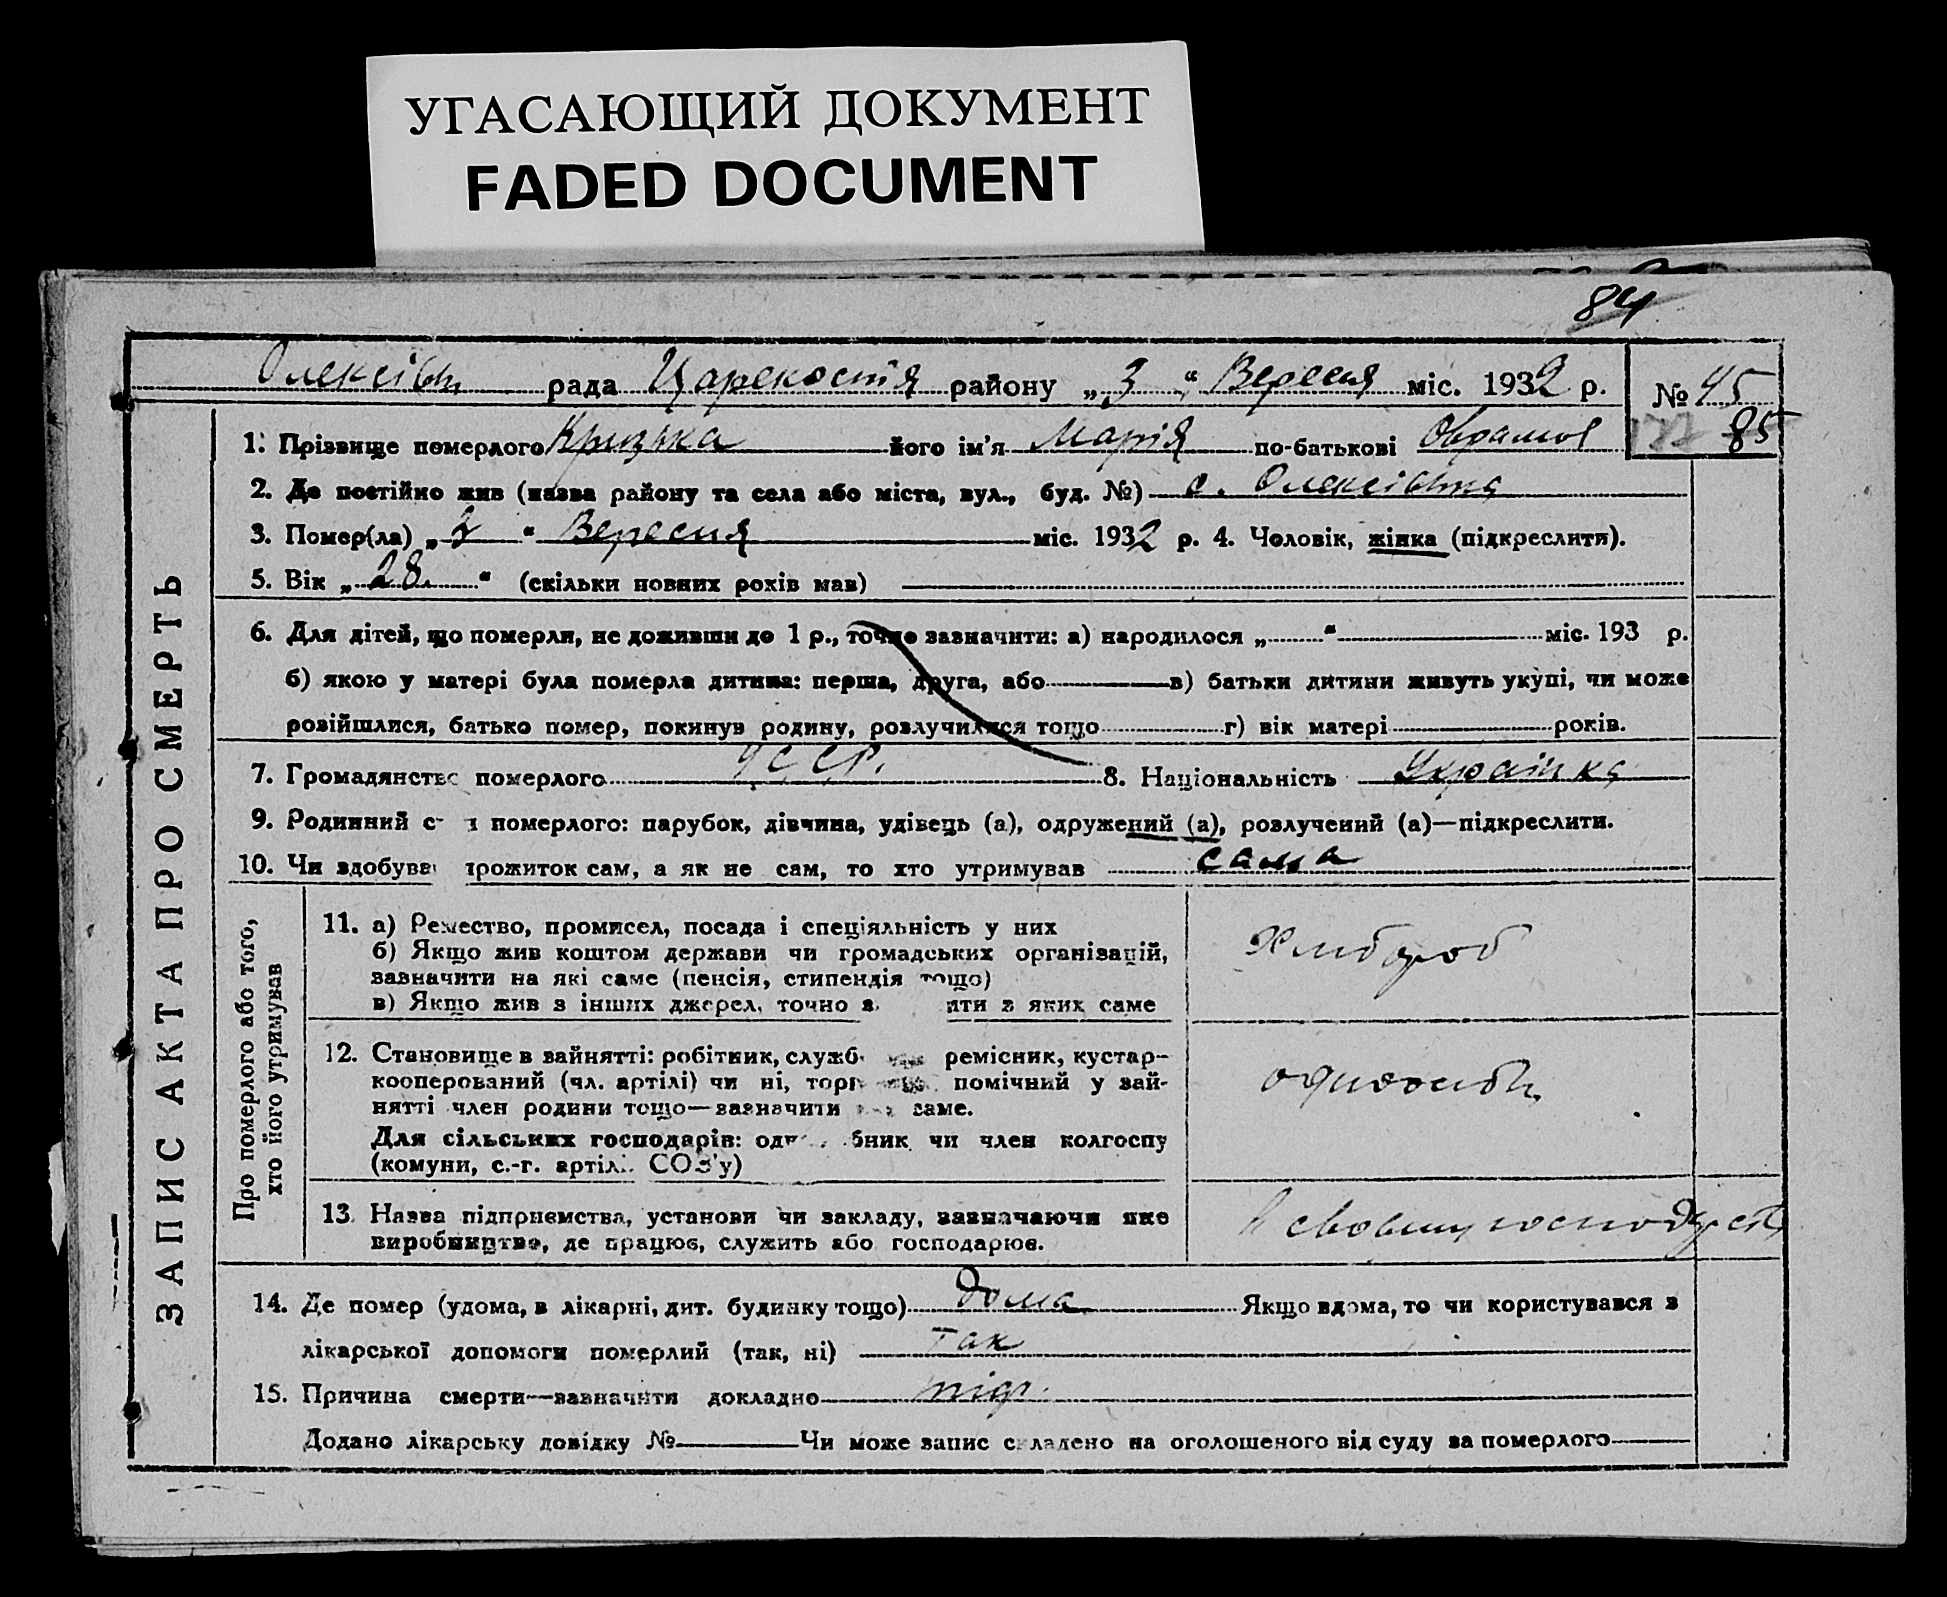 УГАСАЮЩИЙ ДОКУМЕНТ
FADED DOCUMENT
84
Олексієв рада Царекостія району „3“ Вересня міс. 1932 р.
№ 45
85
1. Прізвище померлого його ім'я Марія по-батькові Оврамов
2. Де постійно жив (назва району та села або міста, вул., буд. №) с. Олексіевка
3. Помер(ла) „3“ Вересня міс. 1932 р. 4. Чоловік, жінка (підкреслити).
5. Вік „28.“ (скільки повних років мав)
6. Для дітей, що померли, не доживши до 1 р., точно зазначити: а) народилося „ “ міс. 193 р.
б) якою у матері була померла дитина: перша, друга, або в) батьки дитини живуть укупі, чи може
розійшлися, батько помер, покинув родину, розлучилися тощо г) вік матері років.
7. Громадянство померлого УССР. 8. Національність Українка
9. Родинний с н померлого: парубок, дівчина, удівець (а), одружений (а), розлучений (а)—підкреслити.
10. Чи здобував прожиток сам, а як не сам, то хто утримував сама
ЗАПИС АКТА ПРО СМЕРТЬ
Про померлого або того,
хто його утримував
11. а) Ремество, промисел, посада і спеціяльність у них
б) Якщо жив коштом держави чи громадських організацій,
зазначити на які саме (пенсія, стипендія тощо)
в) Якщо жив з інших джерел, точно з яти з яких саме
Хлібороб
12. Становище в зайнятті: робітник, службо ремісник, кустар-
кооперований (чл. артілі) чи ні, торг помічний у зай-
нятті член родини тощо—зазначити саме.
Для сільських господарів: оди бник чи член колгоспу
(комуни, с.-г. артілі СОЗ'у)
13. Назва підприємства, установи чи закладу, зазначаючи яке
виробництво, де працює, служить або господарює.
В своему господарств
14. Де помер (удома, в лікарні, дит. будинку тощо) дома Якщо вдома, то чи користувався з
лікарської допомоги померлий (так, ні) так
15. Причина смерти—зазначити докладно
Додано лікарську довідку № Чи може запис складено на оголошеного від суду за померлого